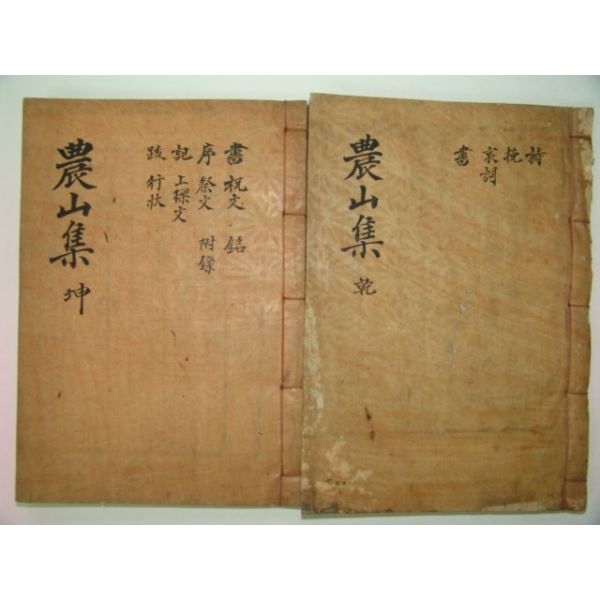 農山集 乾
詩
挽
哀詞
書
農山集 坤
書 祝文 銘
序 祭文 附錄
記 上樑文
跋 行狀